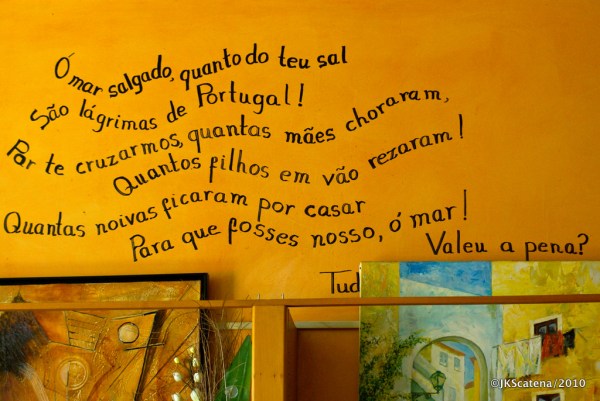 Ó mar salgado, quanto do teu sal
São lágrimas de Portugal!
Par te cruzarmos, quantas mães choraram,
Quantos filhos em vão rezaram!
Quantas noivas ficaram por casar
Para que fosses nosso, ó mar!
Valeu a pena?
Tud
©JKScatena/2010